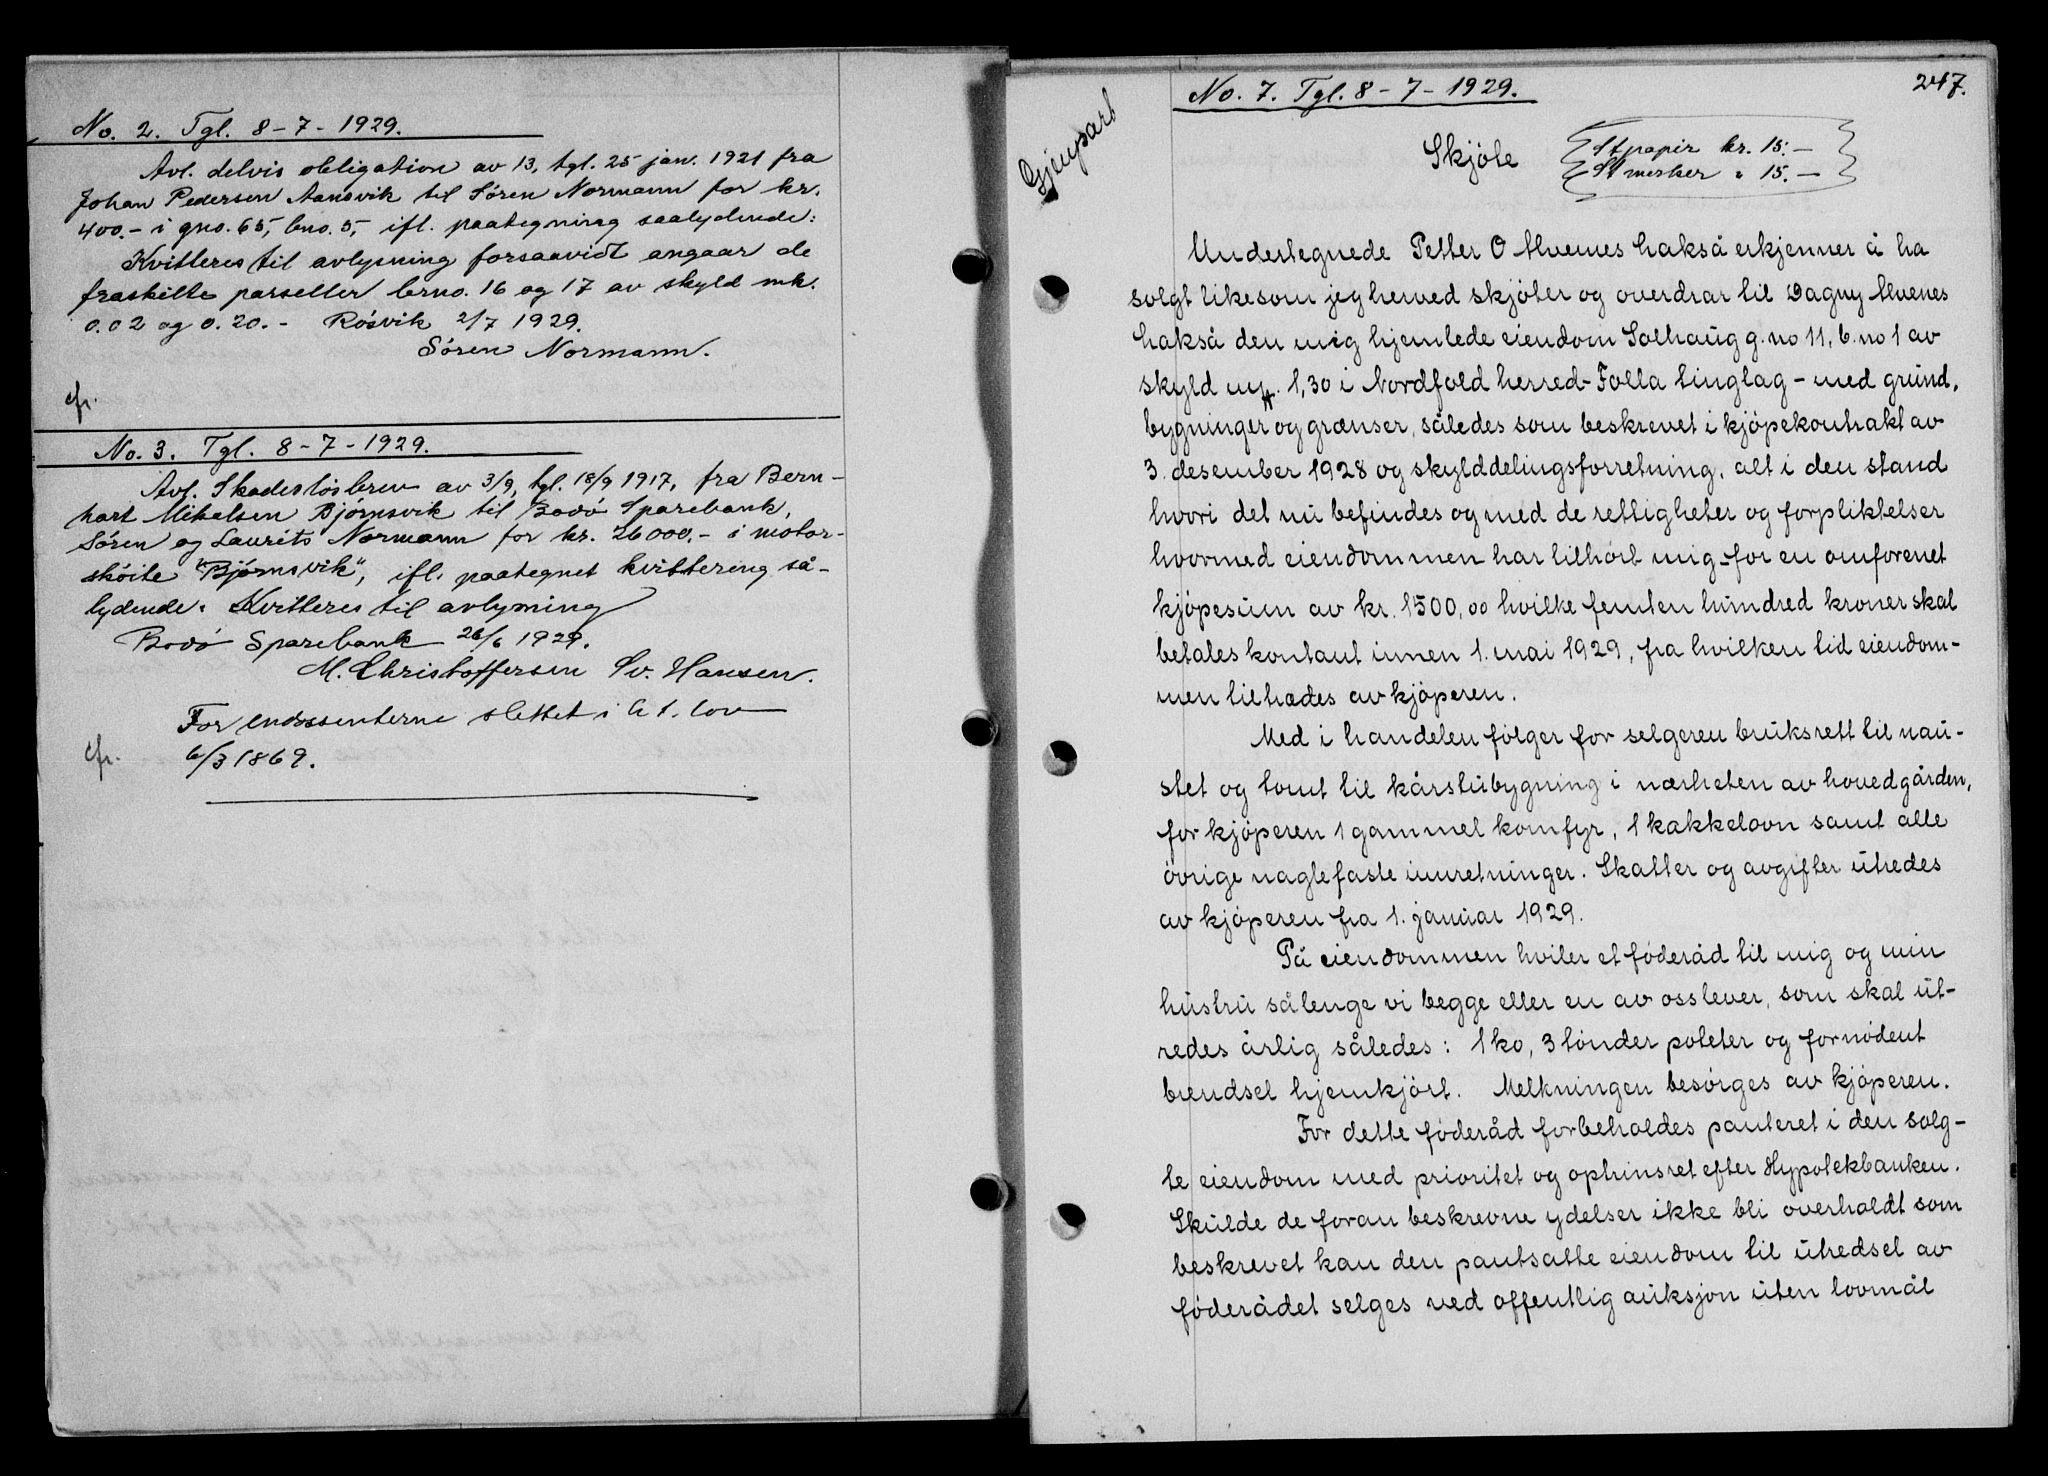 No. 2. Tgl. 8-7-1929.
Avl. delvis obligation av 13, tgl. 25 jan. 1921 fra
Johan Pedersen Aansvik til Sören Normann for kr.
400.- i gno. 65, bno. 5, ifl. paategning saalydende:
Kvitteres til avlysning forsaavidt angaar de
fraskilte parseller brno. 16 og 17 av skyld mk.
0.02 og 0.20.- Rösvik 2/7 1929.
Sören Normann.
cfr.
No. 3. Tgl. 8-7-1929.
Avl. Skadeslösbrev av 3/9, tgl. 18/9 1917, fra Bern-
hart Mikalsen Björnsvik til Bodö Sparebank,
Sören og Laurits Normann for kr. 26000.- i motor-
sköite "Björnsvik", ifl. paategnet kvittering så-
lydende. Kvitteres til avlysning
Bodö Sparebank 26/6 1929.
M. Christoffersen Sv. Hansen.
For endossenterne slettet i h t. lov
6/3 1869.
cfr.
247.
Gjenpart
No. 7. Tgl. 8-7-1929.
Skjöte
Stpapir kr. 15.-
St merker " 15.-
Undertegnede Petter O Mvenes Kakså erkjenner å ha
solgt likesom jeg herved skjöter og overdrar til Dagny Mvenes
Kakså den mig hjemlede eiendom Solhaug g.no 11, b.no 1 av
skyld mk. 1,30 i Nordfold herred - Folla tinglag - med grund,
bygninger og grænser, således som beskrevet i kjöpekontrakt av
3. desember 1928 og skylddelingsforretning, alt i den stand
hvori det nu befindes og med de rettigheter og forpliktelser
hvormed eiendommen har tilhört mig - for en omforenet
kjöpesum av kr. 1500,00 hvilke femten hundred kroner skal
betales kontant innen 1. mai 1929, fra hvilken tid eiendom-
men tiltrædes av kjöperen.
Med i handelen fölger for selgeren bruksrett til nau-
stet og tomt til kårstubygning i nærheten av hovedgården,
for kjöperen 1 gammel komfyr, 1 kakkelovn samt alle
övrige naglefaste innretninger. Skatter og avgifter utredes
av kjöperen fra 1. januar 1929.
På eiendommen hviler et föderåd til mig og min
hustru sålenge vi begge eller en av oss lever, som skal ut-
redes årlig således: 1 ko, 3 tönder poteter og fornödent
brendsel hjemkjört. Melkningen besörges av kjöperen.
For dette föderåd forbeholdes panteret i den solg-
te eiendom med prioritet og ophinsret efter Hypotekbanken.
Skulde de foran beskrevne ydelser ikke bli overholdt som
beskrevet kan den pantsatte eiendom til utredsel av
föderådet selges ved offentlig auksjon uten lovmål